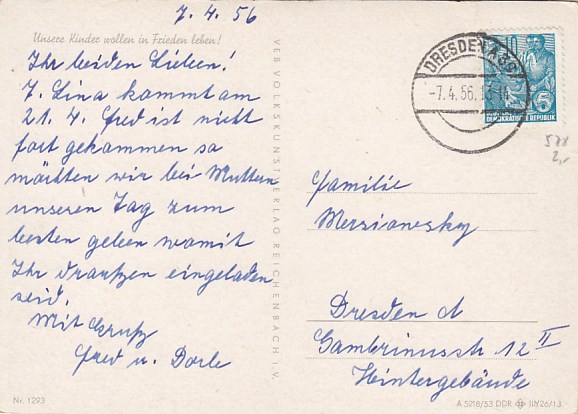 7.4.56
Unsere Kinder wollen in Frieden leben!
Ihr beiden Lieben!
7. Lina kommt am
21.4. Fred ist nicht
fort gekommen so
möchten wir bei Muttern
unseren Tag zum
besten geben womit
Ihr draußen eingeladen
seid.
Mit Gruß
Fred u. Dorle
Nr. 1293
VEB VOLKSKUNSTVERLAG REICHENBACH I. V.
DRESDEN A 39
-7.4.56.
10
5
DEUTSCHE
DEMOKRATISCHE REPUBLIK
578
2,-
Familie
Mersiowsky
Dresden A
Gambrinusstr 12 II
Hintergebäude
A 5218/53 DDR III/26/13